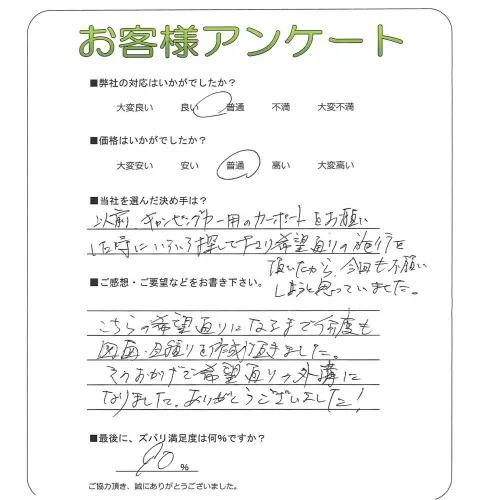 お客様アンケート
■弊社の対応はいかがでしたか？
大変良い 良い 普通 不満 大変不満
■価格はいかがでしたか？
大変安い 安い 普通 高い 大変高い
■当社を選んだ決め手は？
以前、キャンピングカー用のカーポートをお願い
した時にいろいろ探して下さり希望通りの施行を
頂いたから、今回もお願い
しようと思っていました。
■ご感想・ご要望などをお書き下さい。
こちらの希望通りになるまで何度も
図面・見積りを作成頂きました。
そのおかげで希望通りの外構に
なりました。ありがとうございました！
■最後に、ズバリ満足度は何%ですか？
90 %
ご協力頂き、誠にありがとうございました。